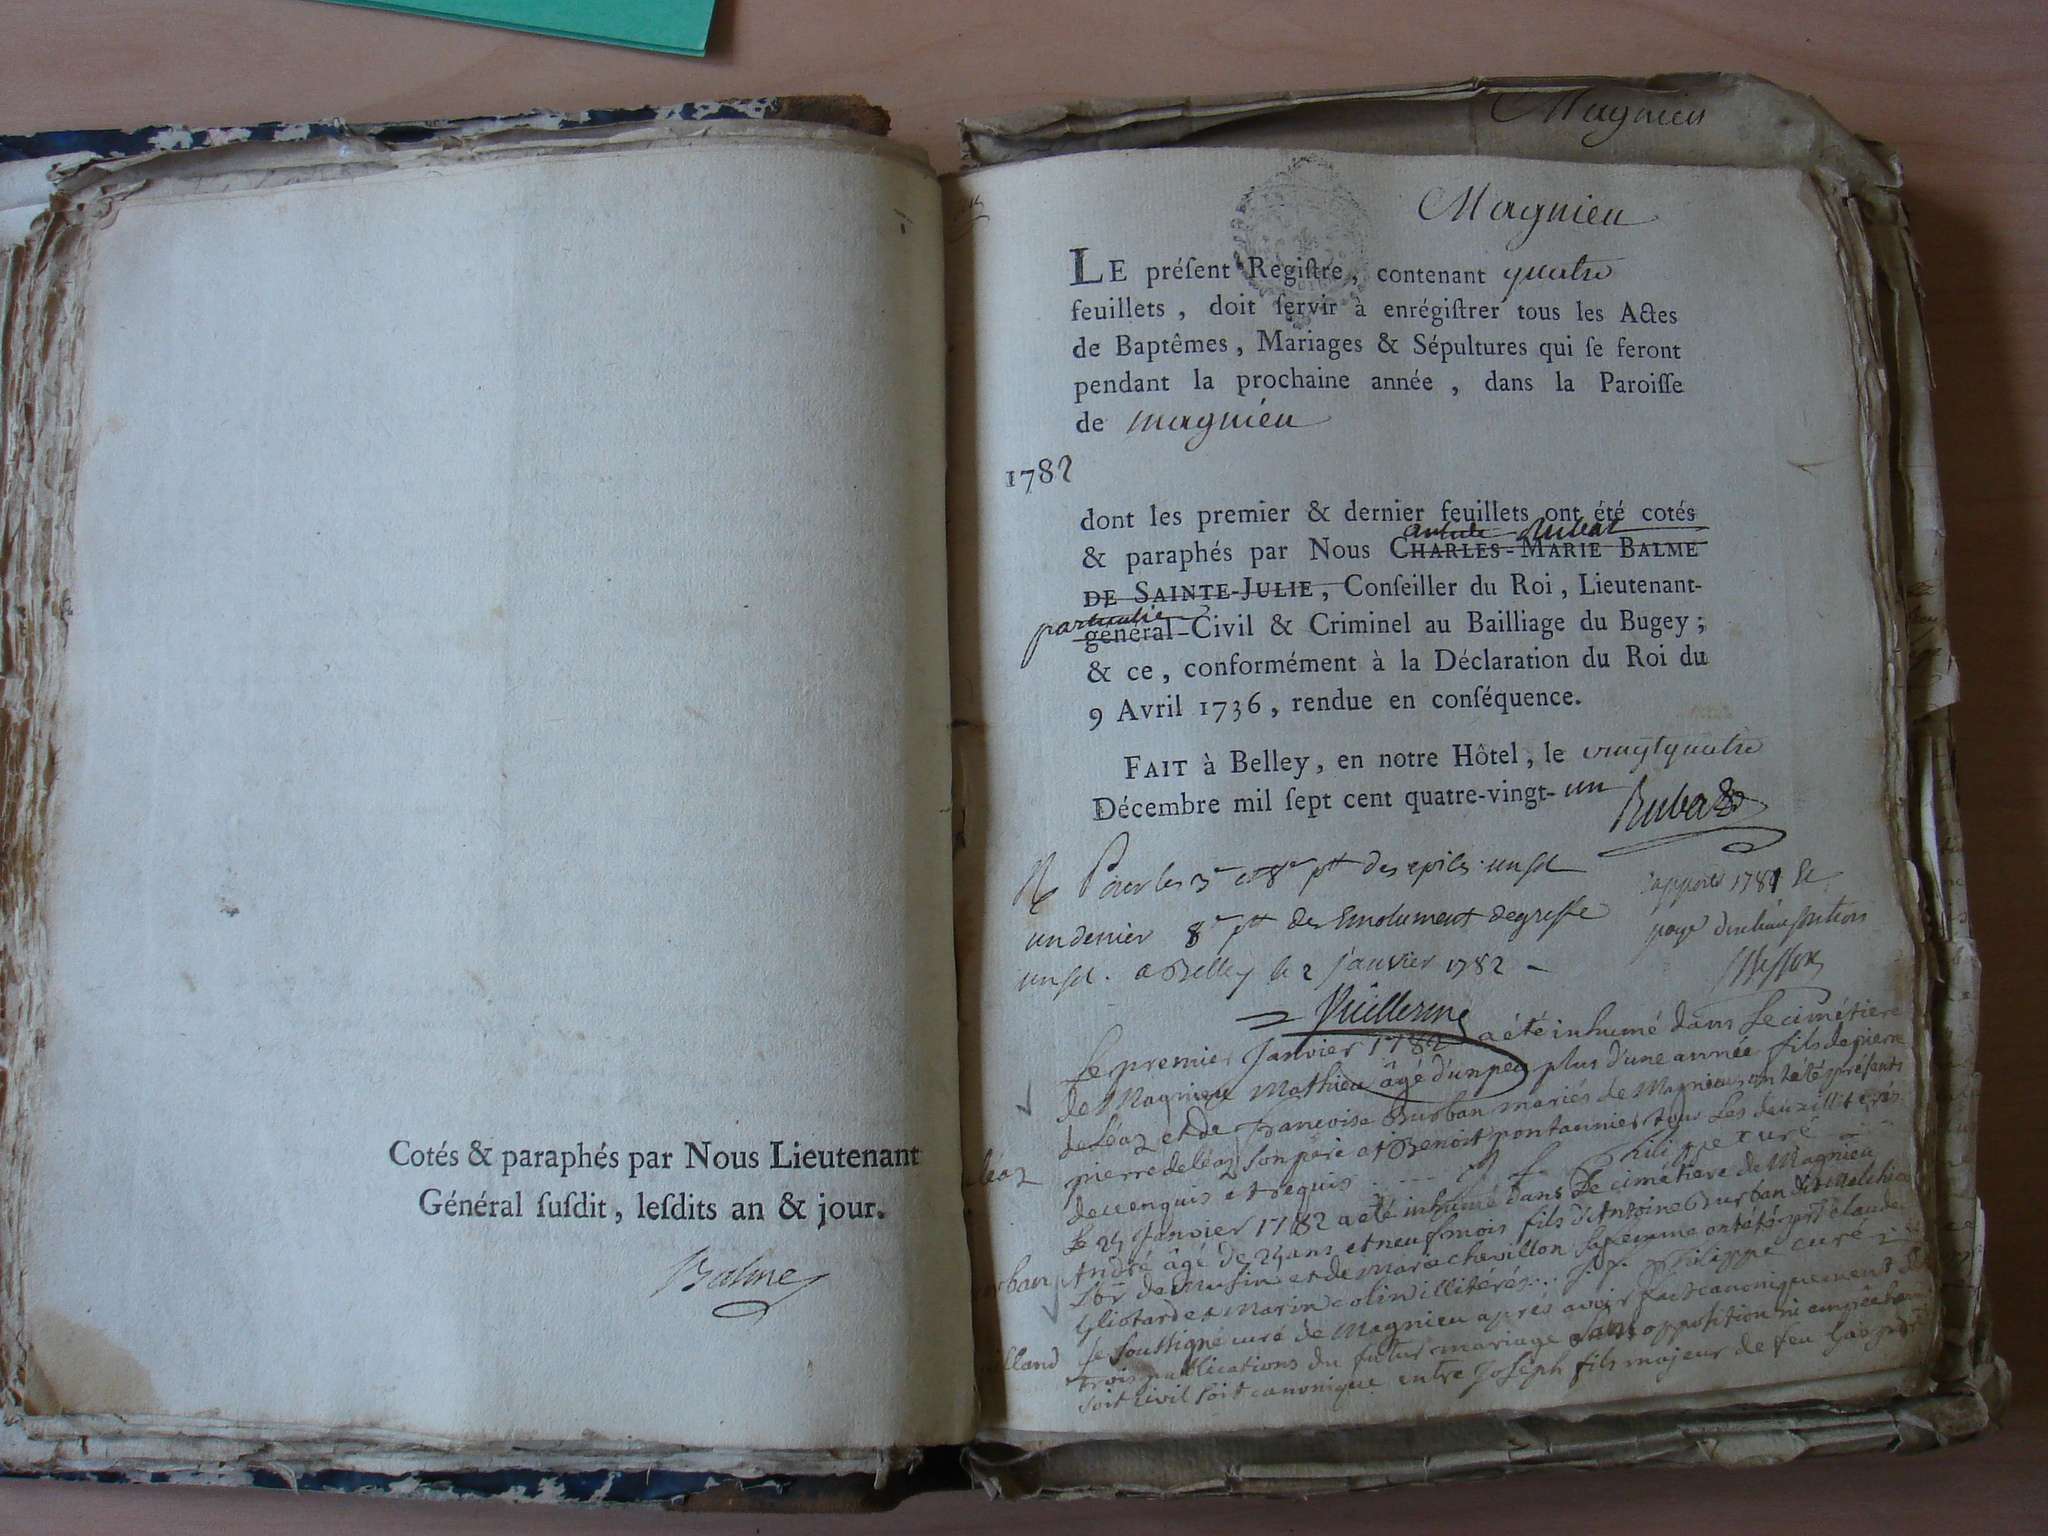 Cotés & paraphés par Nous Lieutenant
Général ſuſdit, leſdits an & jour.
Balme
Magnieu
Magnieu
LE préſent Regiſtre, contenant quatre
feuillets, doit ſervir à enrégiſtrer tous les Actes
de Baptêmes, Mariages & Sépultures qui ſe feront
pendant la prochaine année, dans la Paroiſſe
de magnieu
1782
dont les premier & dernier feuillets ont été cotés
& paraphés par Nous CHARLES-MARIE BALME
DE SAINTE-JULIE, Conſeiller du Roi, Lieutenant-
particulier
général-Civil & Criminel au Bailliage du Bugey;
& ce, conformément à la Déclaration du Roi du
9 Avril 1736, rendue en conſéquence.
FAIT à Belley, en notre Hôtel, le vingtquatre
Décembre mil ſept cent quatre-vingt-un
Rubat
Pour les un sol
un denier 8 Emolument de greffe
un sol. a Belley le 2 janvier 1782
Le premier Janvier 1782 a été inhumé dans le cimétiere
de Magnieu Mathieu âgé d'un peu plus d'une année fils de pierre
deléaz et de françoise Burban mariés de Magnieu, ont été présents
pierre deléaz son père et Benoit pontannier tous les deux illitérés
de ce enquis et requis ..... philippe curé
léaz
le 25 Janvier 1782 a été inhumé dans le cimétiere de Magnieu
André âgé de ans et neuf mois fils d'Antoine Burban
de Musin et de Marie chevillon sa femme ont été claude
Gliotard et Marin colin illitérés... philippe curé
rban
je soussigné curé de Magnieu aprés avoir fait canoniquement
trois publications du futur mariage sans opposition ni empêchement
soit civil soit canonique entre Joseph fils majeur de feu Gaspard
illand